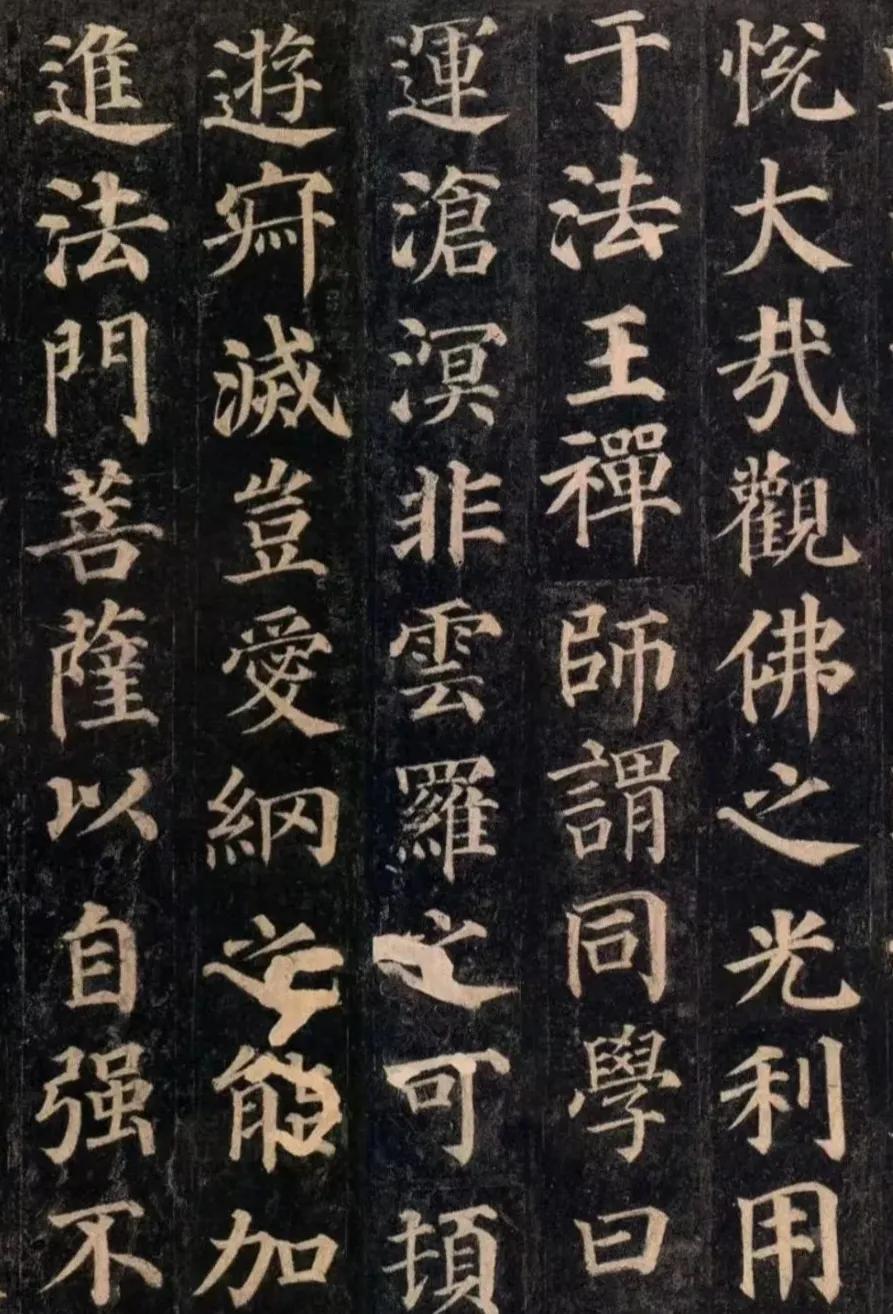 悅大哉觀佛之光利用
于法王禪師謂同學曰
運滄溟非雲羅之可頓
遊寂滅豈愛網之能加
進法門菩薩以自强不